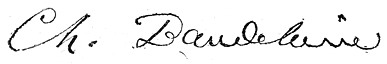 Ch. Baudelaire